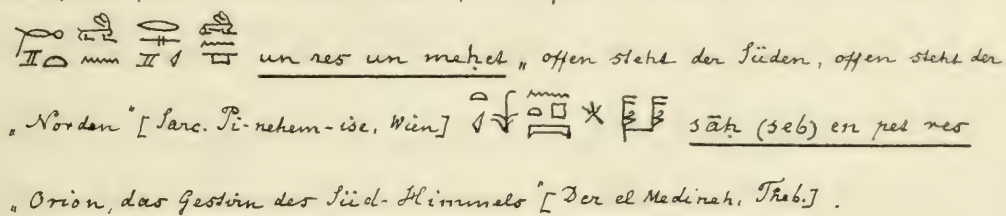 un res un meḥet „ offen steht der Süden, offen steht der
„ Norden “ [ Sarc. Pi-nehem-ise, Wien ] sāḥ (seb) en pet res
„ Orion, das Gestirn des Süd-Himmels “ [ Der el Medineh, Theb. ] .